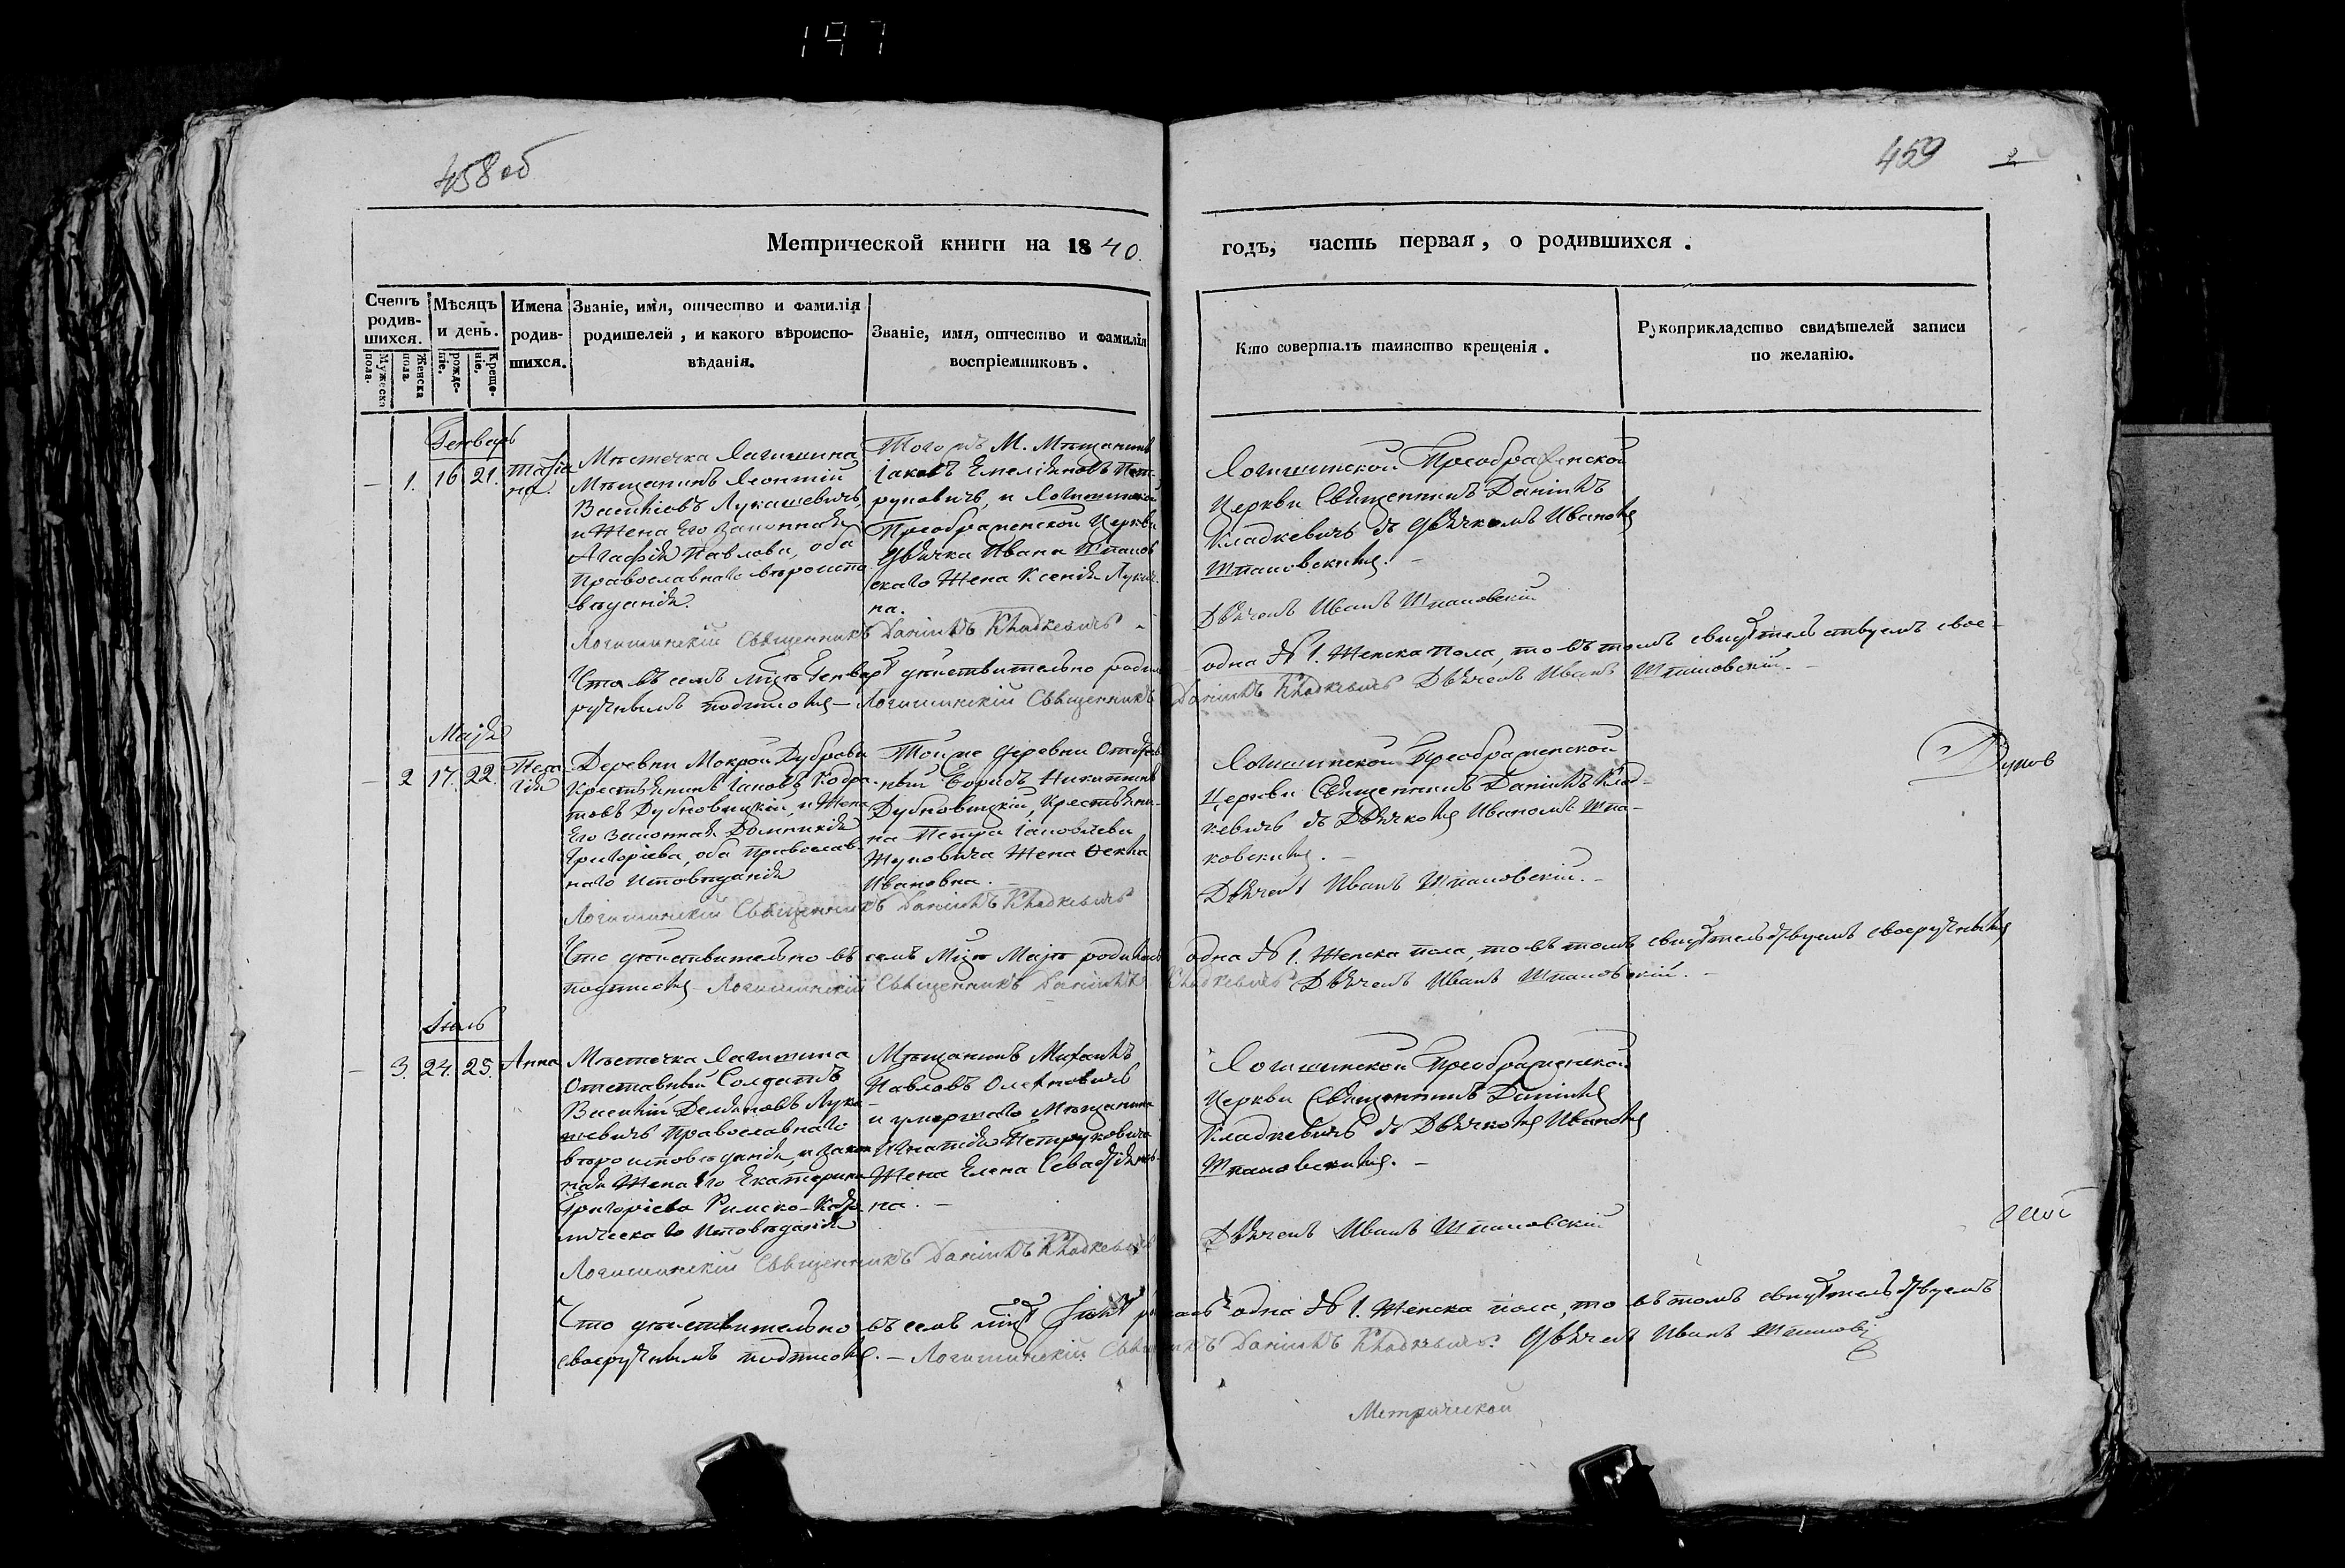 197
458 об
459
2
Метрической книги на 1840.
годъ, часть первая, о родившихся.
Счетъ родившихся.
Мужеска пола.
Женска пола.
Мѣсяцъ и день.
рожденіе.
Крещеніе.
Имена родившихся.
Званіе, имя, отчество и фамилія
родителей, и какого вѣроиспо-
вѣданія.
Званіе, имя, отчество и фамилія
воспріемниковъ.
Кто совершалъ таинство крещенія.
Рукоприкладство свидѣтелей записи
по желанію.
Генварь
1. 16 21. Татіа
на.
Мѣстечка Логишина
Мѣщанинъ Леонтій
Василіовъ Лукашевичъ,
и Жена Его Законная
Агафія Павлова, оба
Православнаго вѣроиспо
вѣданія.
Того жъ М. Мѣщанинъ
Іаковъ Емеліановъ Пет-
руковичъ, и Логишинской
Преображенской Церкви
Дьячка Ивана Шпаков
скаго Жена Ксенія Луки
на.
Логишинской Преображенской
Церкви Священникъ Даніилъ
Кладкевичъ съ Дьячкомъ Иваномъ
Шпаковскимъ. –
Дьячекъ Иванъ Шпаковскій
Логишинскій Священникъ Даніилъ Кладкевичъ –
Что въ семъ мцѣ Генварѣ дѣйствительно родил
одна № 1. Женска пола, то въ томъ свидѣтельствуемъ свое-
ручнымъ подписомъ – Логишинскій Священникъ Даніилъ Кладкевичъ Дьячекъ Иванъ Шпаковскій. –
Маія
2 17. 22. Пела
гія
Деревни Мокрой Дубровы
Крестьянинъ Іаковъ Кодра
товъ Дубновицкій, и Жена
Его Законная Домникія
Григоріева, оба Православ
наго Исповѣданія
Той же Деревни Отстав
ный Борисъ Никитинъ
Дубновицкій, Крестьяни-
на Петра Іаковлева
Жуковича Жена Ѳекла
Ивановна. –
Логишинской Преображенской
Церкви Священникъ Даніилъ Клад-
кевичъ съ Дьячкомъ Иваномъ Шпа-
ковскимъ. –
Дьячекъ Иванъ Шпаковскій. –
Логишинскій Священникъ Даніилъ Кладкевичъ
Что дѣйствительно въ семъ Мцѣ Маіѣ родилась одна № 1. Женска пола, то въ томъ свидѣтельствуемъ своеручнымъ
подписомъ – Логишинскій Священникъ Даніилъ Кладкевичъ Дьячекъ Иванъ Шпаковскій. –
Іюль
3. 24. 25. Анна
Мѣстечка Логишина
Отставный Солдатъ
Василій Демяновъ Лука
шевичъ Православнаго
вѣроисповѣданія, и закон
ная Жена Его Екатерина
Григоріева Римско-Като
лическаго Исповѣданія
Мѣщанинъ Михаилъ
Павловъ Олехновичъ
и умершаго Мѣщанина
Игнатія Петруковича
Жена Елена Севастіанов-
на. –
Логишинской Преображенской
Церкви Священникъ Даніилъ
Кладкевичъ съ Дьячкомъ Иваномъ
Шпаковскимъ. –
Дьячекъ Иванъ Шпаковскій
Логишинскій Священникъ Даніилъ Кладкевичъ
Что дѣйствительно въ семъ мцѣ Іюлѣ одна № 1. Женска пола, то въ томъ свидѣтельствуемъ
своеручнымъ подписомъ. – Логишинскій Священникъ Даніилъ Кладкевичъ. Дьячекъ Иванъ Шпаковскій
Метрической